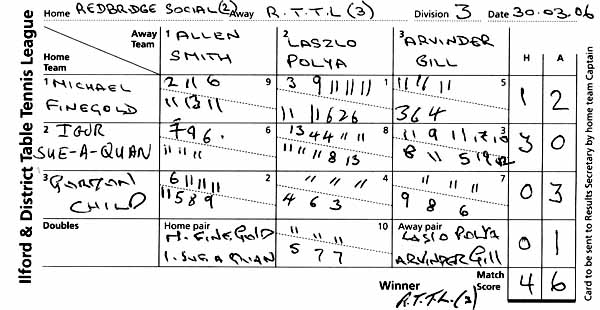 Home REDBRIDGE SOCIAL (2) Away R.T.T.L (3) Division 3 Date 30.03.06
Ilford & District Table Tennis League
Away Team
Home Team
1 ALLEN SMITH
2 LASZLO POLYA
3 ARVINDER GILL
H A
1 MICHAEL FINEGOLD
2 11 6 9
11 13 11
3 9 11 11 11 1
11 11 6 2 6
11 11 11 5
3 6 4
1 2
2 IGOR SUE-A-QUAN
7 9 6 6
11 11 11
13 4 4 11 11 8
11 11 11 8 13
11 9 11 3
8 11 5
3 0
3 CHILD
6 11 11 11 2
11 5 8 9
11 11 11 4
4 6 3
11 11 11 7
9 8 6
0 3
Doubles
Home pair
M. FINEGOLD
I. SUE A QUAN
11 11 11 10
5 7 7
Away pair
LASLO POLYA
ARVINDER Gill
0 1
Winner R.T.T.L. (2)
Match Score 4 6
Card to be sent to Results Secretary by home team Captain